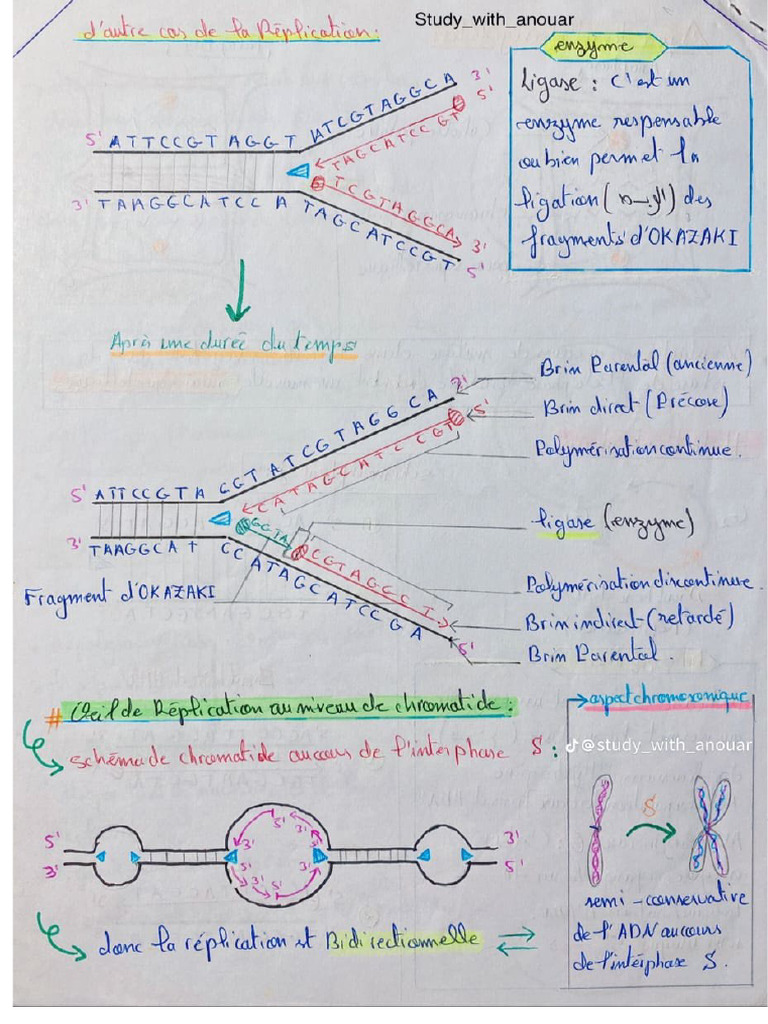 Study_with_anouar
d'autre cas de la Réplication:
enzyme
Ligase : C'est un
enzyme responsable
ou bien permet la
ligation ( ) des
fragments d'OKAZAKI
3'
5'
5' ATTCCGT AGGT ATCGTAGGCA
TAGCATCCGT
TCGTAGGCA 3'
3' TAAGGCATCC A TAGCATCCGT 5'
Après une durée du temps
Brin Parental (ancienne)
3'
5'
Brin direct (Précoce)
Polymérisation continue.
5' ATTCCGTA GGT ATCGTAGGCA
CATAGCATCCGT
ligase (enzyme)
GGTA
CGTAGGCT
3' TAAGGCAT CCATAGCATCCGA
5'
Fragment d'OKAZAKI
Polymérisation discontinue.
Brin indirect (retardé)
Brin Parental.
# Œil de Réplication au niveau de chromatide:
aspect chromosomique
schéma de chromatide au cours de l'interphase S :
@study_with_anouar
S
5' 3'
3' 5'
5'
3' 3'
5' 3' 3'
5'
semi-conservative
de l'ADN au cours
de l'interphase S.
donc la réplication est Bidirectionnelle